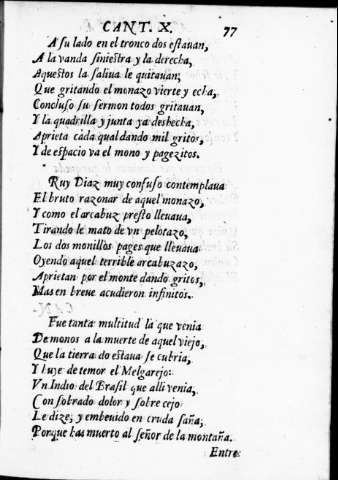 CANT. X. 77
A su lado en el tronco dos estauan,
A la vanda siniestra y la derecha,
Aquestos la saliua le quitauan;
Que gritando el monazo vierte y echa,
Concluso su sermon todos gritauan,
Y la quadrilla y junta ya deshecha,
Aprieta cada qual dando mil gritos,
Y de espacio va el mono y pagezitos.
Ruy Diaz muy confuso contemplaua
El bruto razonar de aquel monazo,
Y como el arcabuz presto lleuaua,
Tirando le mato de vn pelotazo,
Los dos monillos pages que lleuaua
Oyendo aquel terrible arcabuzazo,
Aprietan por el monte dando gritos,
Mas en breue acudieron infinitos.
Fue tanta multitud la que venia
De monos a la muerte de aquel viejo,
Que la tierra do estaua se cubria,
Y huye de temor el Melgarejo:
Vn Indio del Brasil que alli venia,
Con sobrado dolor y sobre cejo
Le dize, y embeuido en cruda saña,
Porque has muerto al señor de la montaña.
Entre